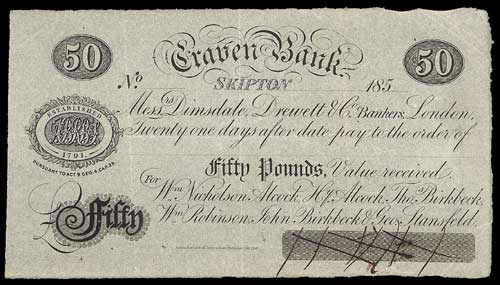 50 Craven Bank 50
No SKIPTON 185
Messrs Dimsdale, Drewett & Co. Bankers, London,
ESTABLISHED
1791.
Twenty one days after date pay to the order of
PURSUANT TO ACT 9 GEO. 4. CAP. 23.
Fifty Pounds, Value received
For
Wm Nicholson Alcock, Hy. Alcock, Thos. Birkbeck,
Wm Robinson, John Birkbeck & Geo. Stansfeld.
£ Fifty